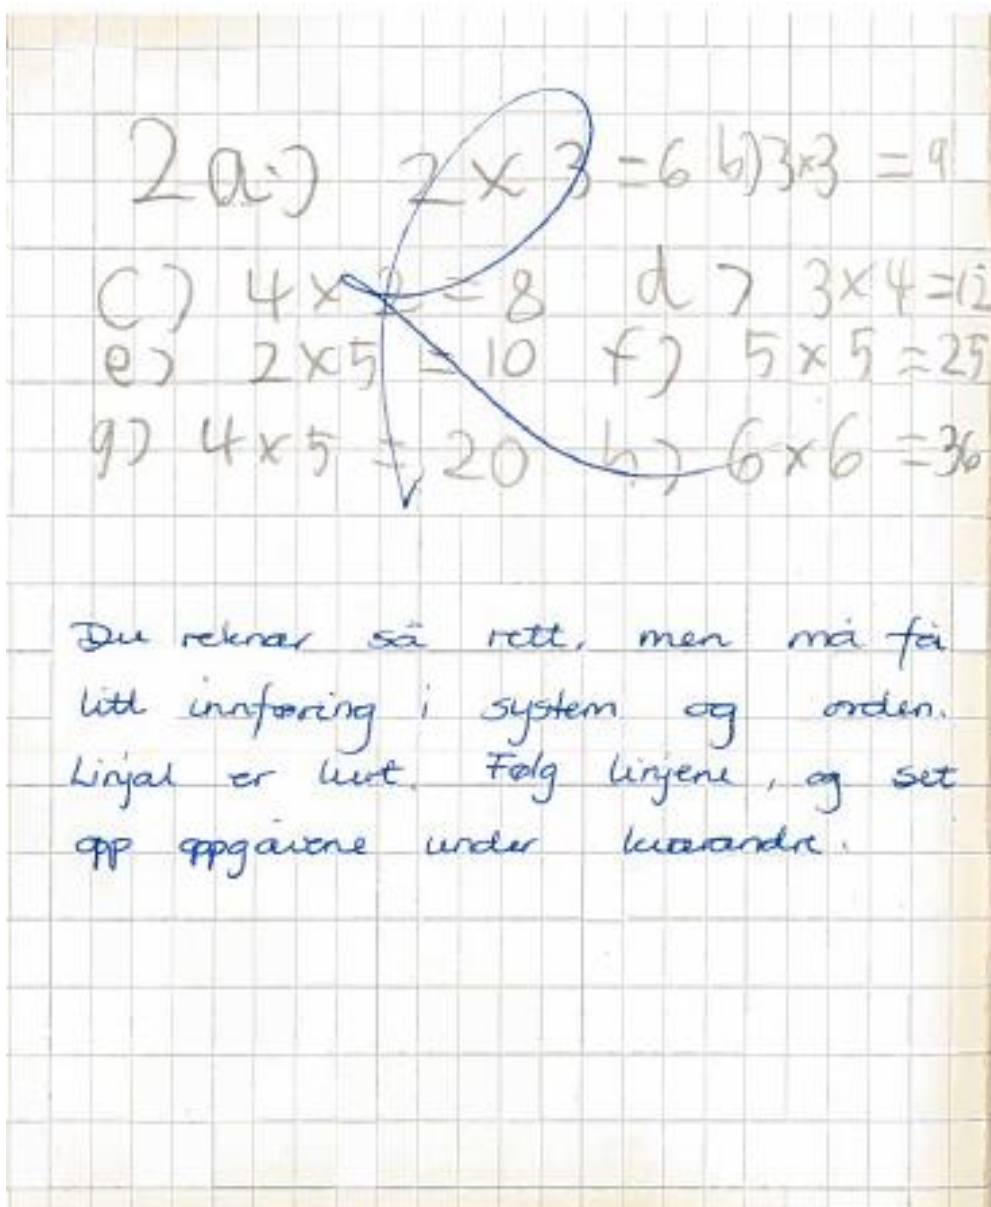 2a:) 2 x 3 = 6 b) 3x3 = 9
c) 4 x 2 = 8 d) 3x4=12
e) 2x5 = 10 f) 5 x 5 = 25
g) 4 x 5 = 20 h) 6x6 = 36
Du reknar så rett, men må få
litt innføring i system og orden.
Linjal er lurt. Følg linjene, og set
opp oppgåvene under kvarandre.